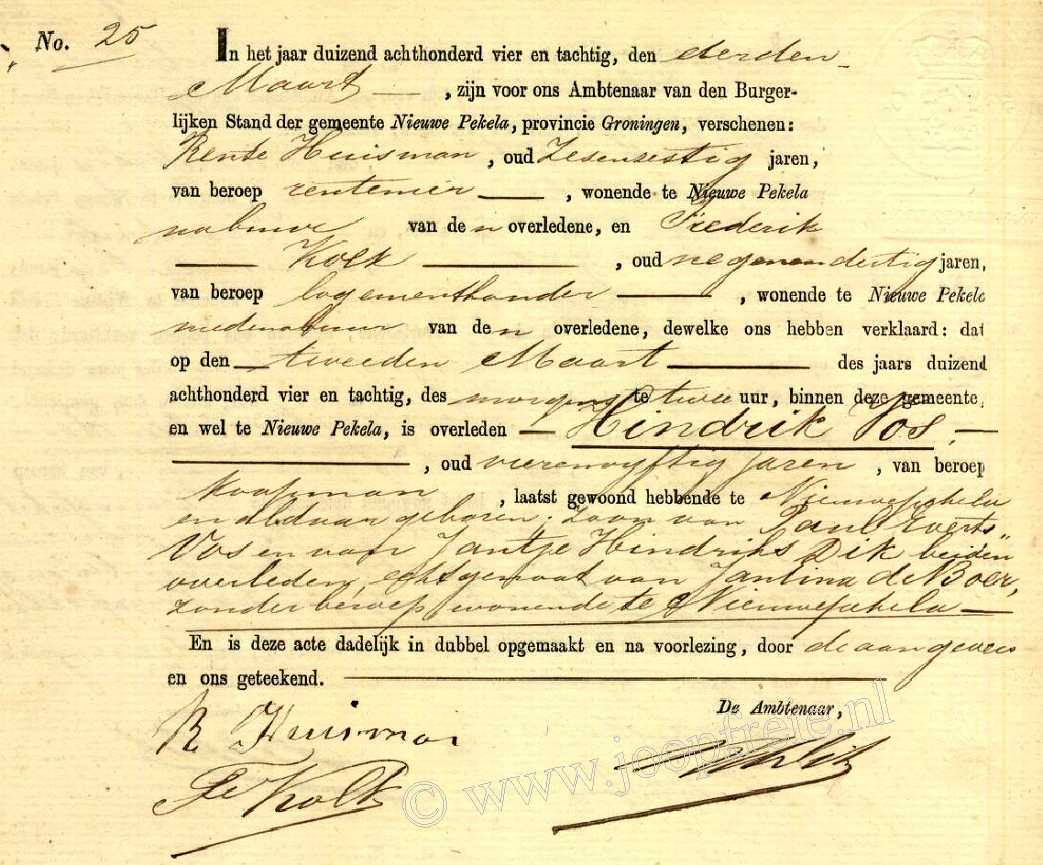 No. 25
In het jaar duizend achthonderd vier en tachtig, den derden
Maart, zijn voor ons Ambtenaar van den Burger-
lijken Stand der gemeente Nieuwe Pekela, provincie Groningen, verschenen:
Huisman, oud zesensestig jaren,
van beroep rentenier, wonende te Nieuwe Pekela
nabuur van den overledene, en Frederik
Kolk, oud negenendertig jaren,
van beroep logementhouder, wonende te Nieuwe Pekela
medenabuur van den overledene, dewelke ons hebben verklaard: dat
op den tweeden Maart des jaars duizend
achthonderd vier en tachtig, des morgens te twee uur, binnen deze gemeente,
en wel te Nieuwe Pekela, is overleden Hindrik Vos,
, oud vierenvyftig jaren, van beroep
koopman, laatst gewoond hebbende te Nieuwepekela
en aldaar geboren; zoon van Paul Everts
Vos en van Jantje Hindriks Dik beiden
overleden, echtgenoot van Jantina de Boer,
zonder beroep wonende te Nieuwepekela
En is deze acte dadelijk in dubbel opgemaakt en na voorlezing, door de aangevers
en ons geteekend.
De Ambtenaar,
R Huisman
Fr Kolk
© www.joopfreie.nl